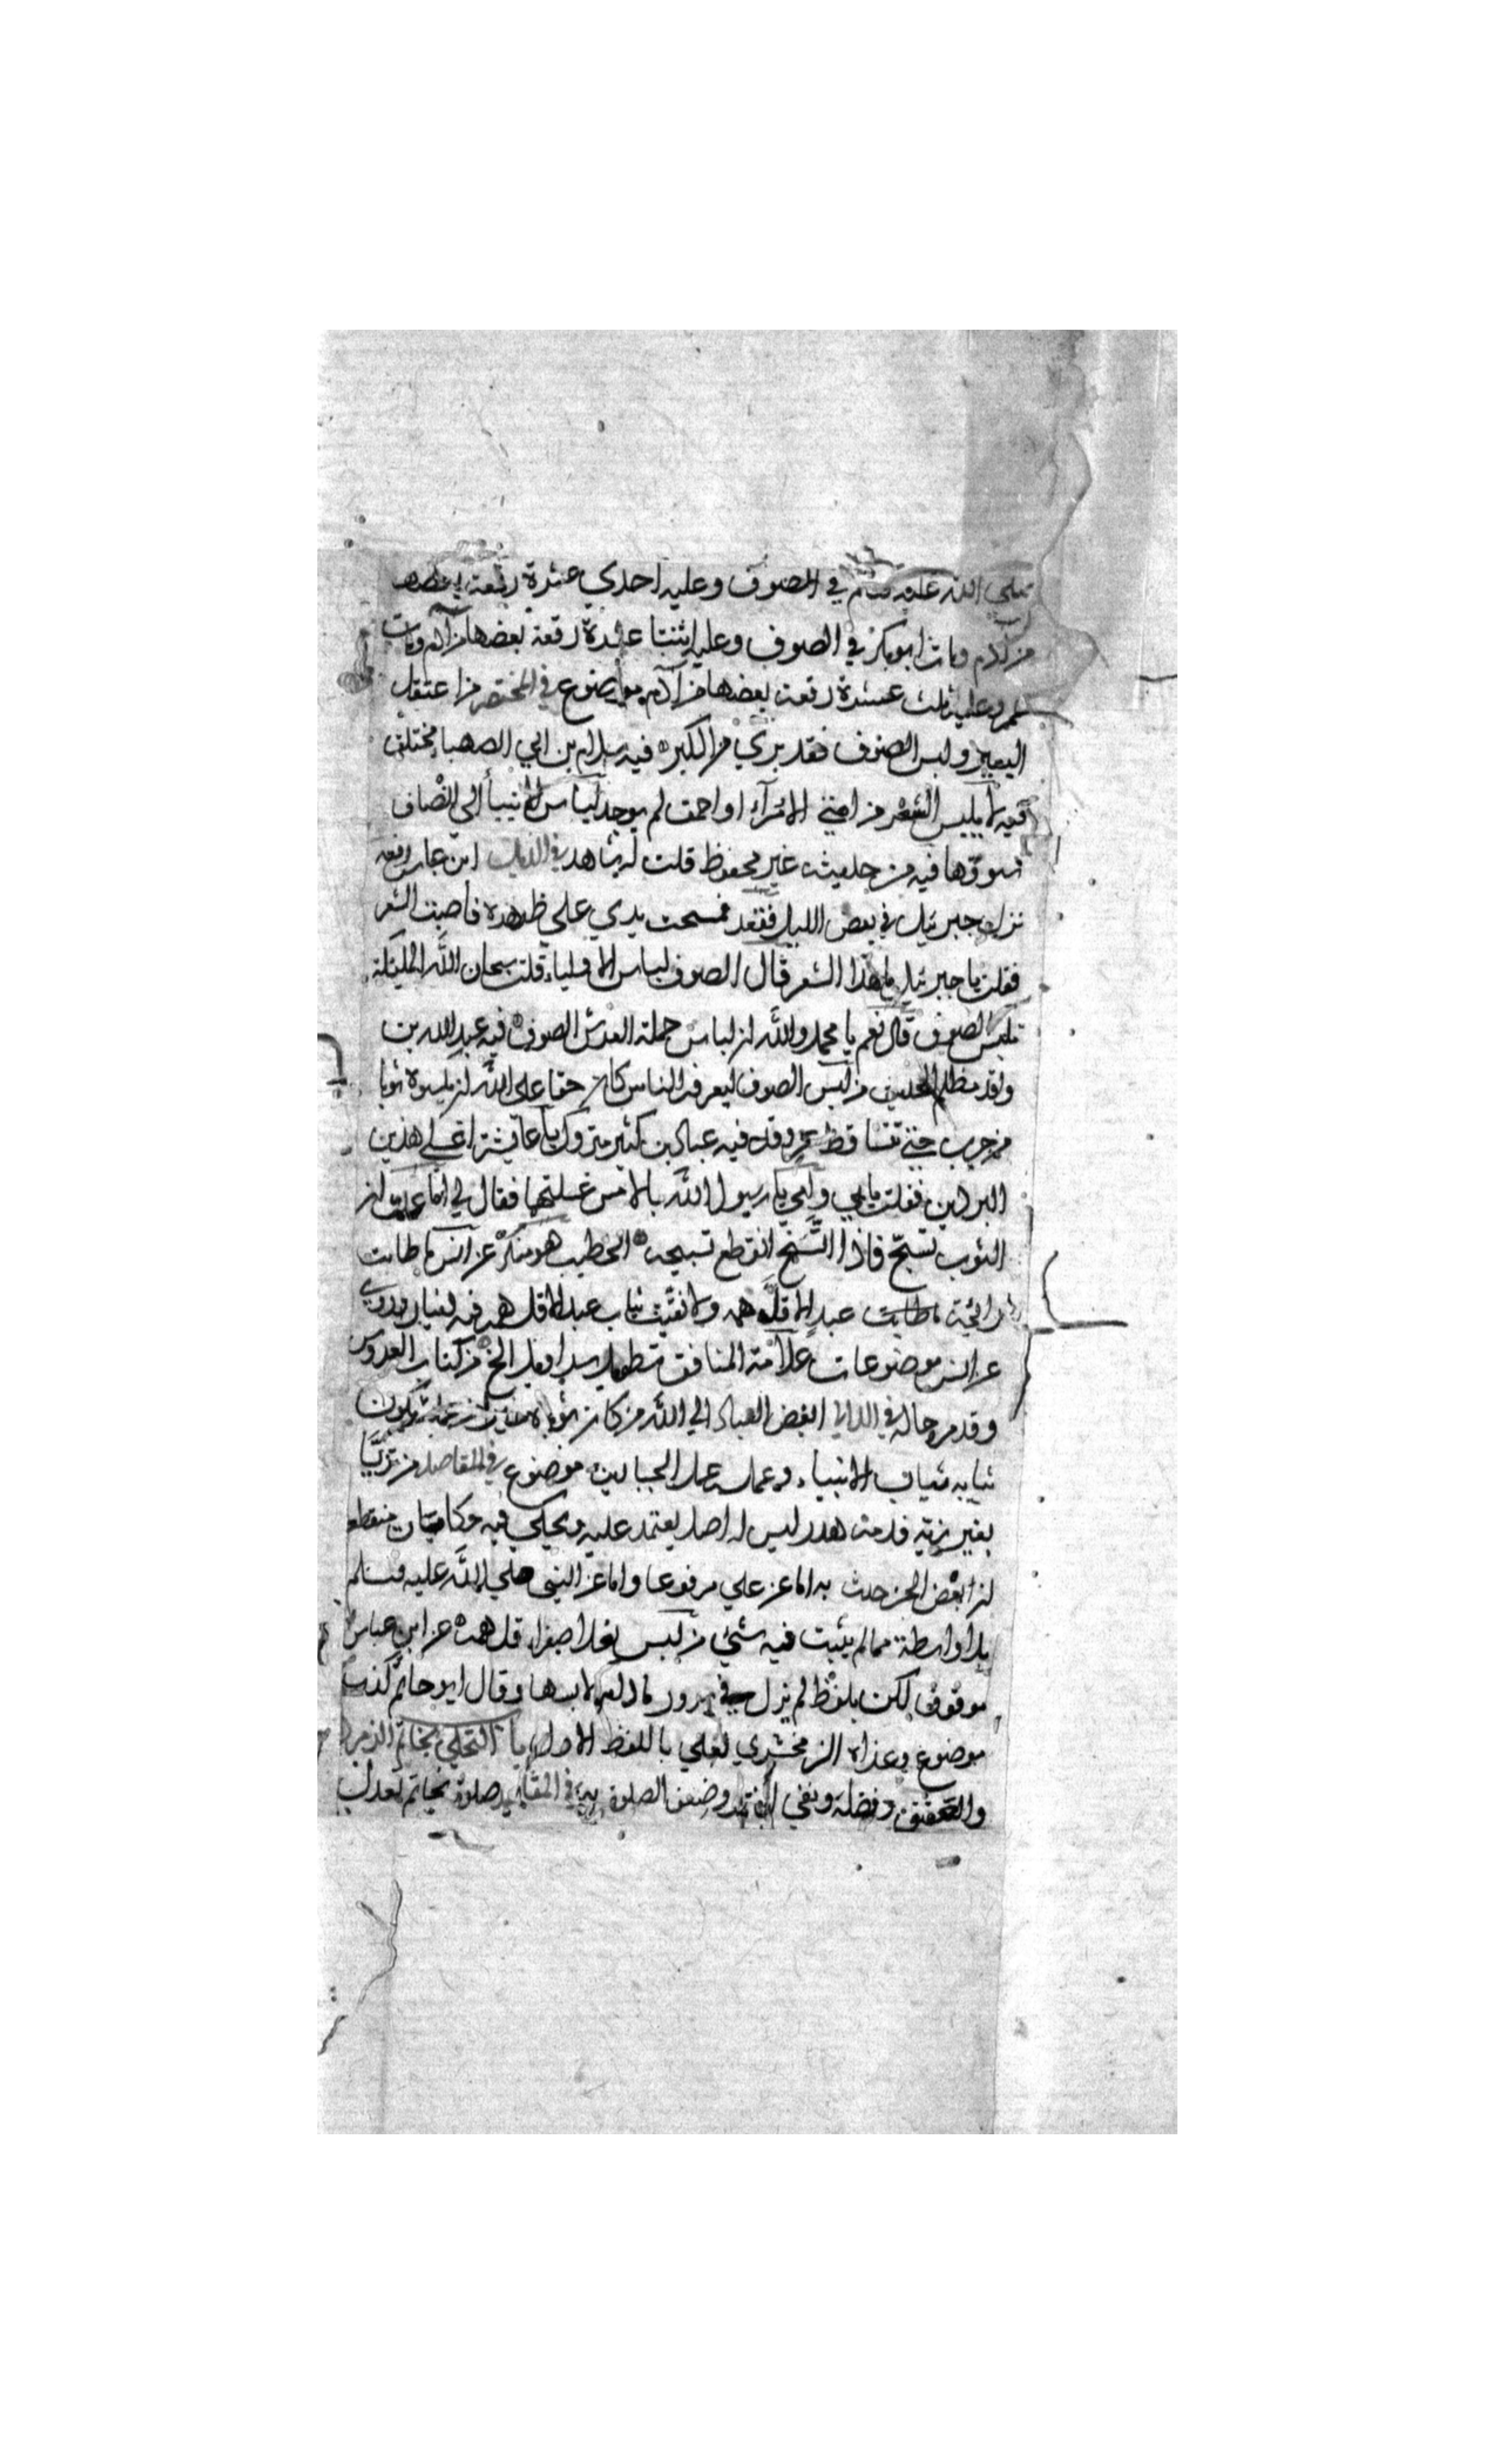 صلى الله عليه وسلم في الصوف وعليه احدي عشرة رقعة بعضها
من ادم ومات ابو بكر في الصوف وعليه اثنتا عشرة رقعة بعضها من ادم ومات
عمر وعليه ثلث عشرة رقعة بعضها من ادم موضوع في المختصر من اعتقل
البعير ولبس الصوف فقد بري من الكبر فيه سلام بن ابي الصهبا مختلف
فيه لا يلبس الشعر من امتي الا مراء او احمق لم يوجد لباس الانبيا الى انصاف
سوقها فيه من حديثه غير محفوظ قلت له شاهد في الذيل ابن عباس رفعه
نزل جبرئيل في بعض الليل فقعد فمسحت يدي على ظهره فاصبت الشعر
فقلت يا جبرئيل ما هذا الشعر قال الصوف لباس الاولياء قلت سبحان الله الملئكة
تلبس الصوف قال نعم يا محمد والله ان لباس حملة العرش الصوف فيه عبد الله بن
واقد مظلم الحديث من لبس الصوف ليعرفه الناس كان حقا على الله ان يكسوه ثوبا
من جرب حتى تتساقط عروقه فيه عباد بن كثير متروك يا عايشة اغسلي هذين
البردين فقلت بابي وامي يا رسول الله بالامس غسلتهما فقال لي اما علمت ان
الثوب تسبح فاذا اتسخ انقطع تسبيحه الخطيب هو منكر عن انس ما طابت
رائحة عبد الا قل همه ولا نقيت ثياب عبد الا قل همه
عن انس موضوعات علامة المنافق تطويل سراويله الخ من كتاب العروس
وقد مر حاله في اللالي ابغض العباد الي الله من كان ثوباه خيرا من عمله ان يكون
ثيابه ثياب الانبياء وعمله عمل الجبارين موضوع في المقاصد من تزيا
بغير زيه فدمه هدر ليس له اصل يعتمد عليه ويحكي فيه حكايات منقطعة
ان بعض الجن حدث به اما عن علي مرفوعا واما عن النبي صلي الله عليه وسلم
بلا واسطة مما لم يثبت فيه شئ من لبس نعلا صفراء قل همه عن ابن عباس
موقوف لكن بلفظ لم يزل في سرور ما دام لابسها وقال ابو حاتم كذب
موضوع وعزاه الزمخشري لعلي باللفظ الاول با التحلي بخاتم الزمرد
والعقيق وفضله ونفي الفقر وضعف الصلوة به في المقاصد صلوة بخاتم تعدل